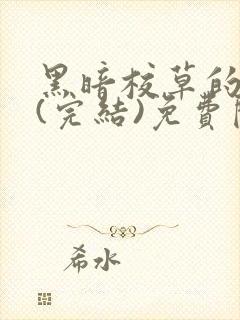 黑暗校草的
(完結)免費
希水